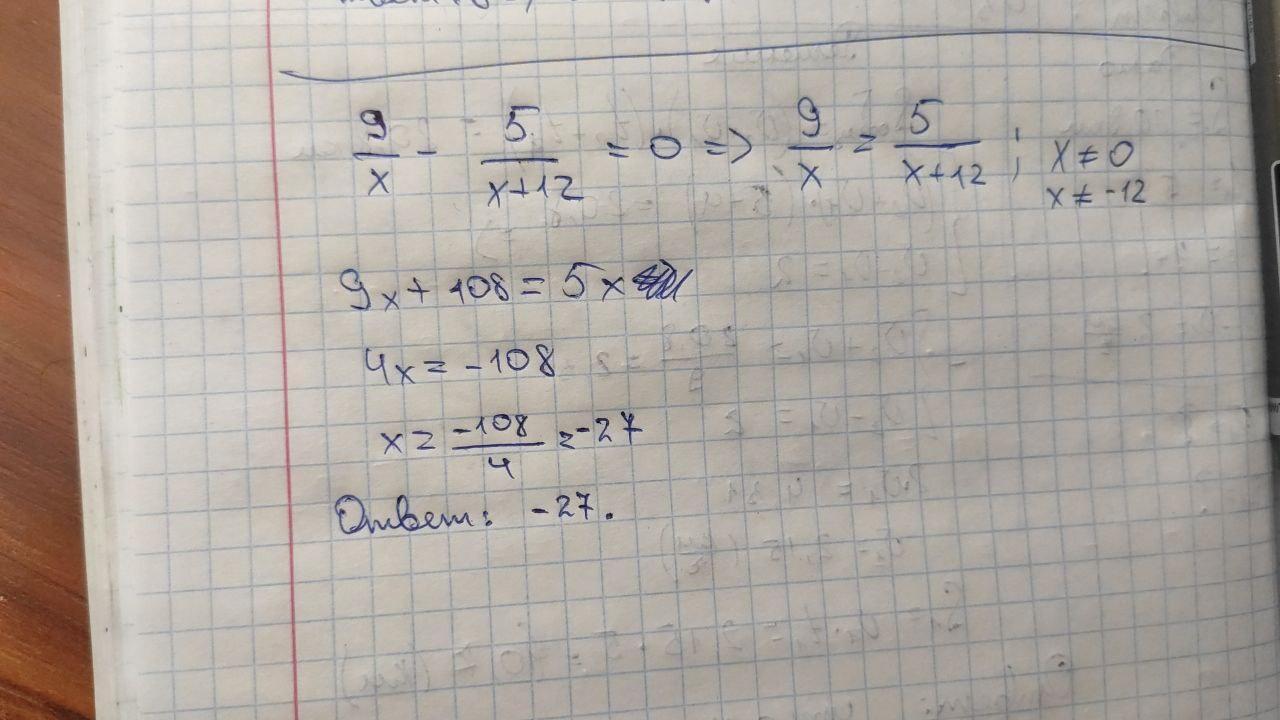 9/x - 5/(x+12) = 0 => 9/x = 5/(x+12) ; x ≠ 0
x ≠ -12
9x + 108 = 5x
4x = -108
x = -108/4 = -27
Ответ: -27.